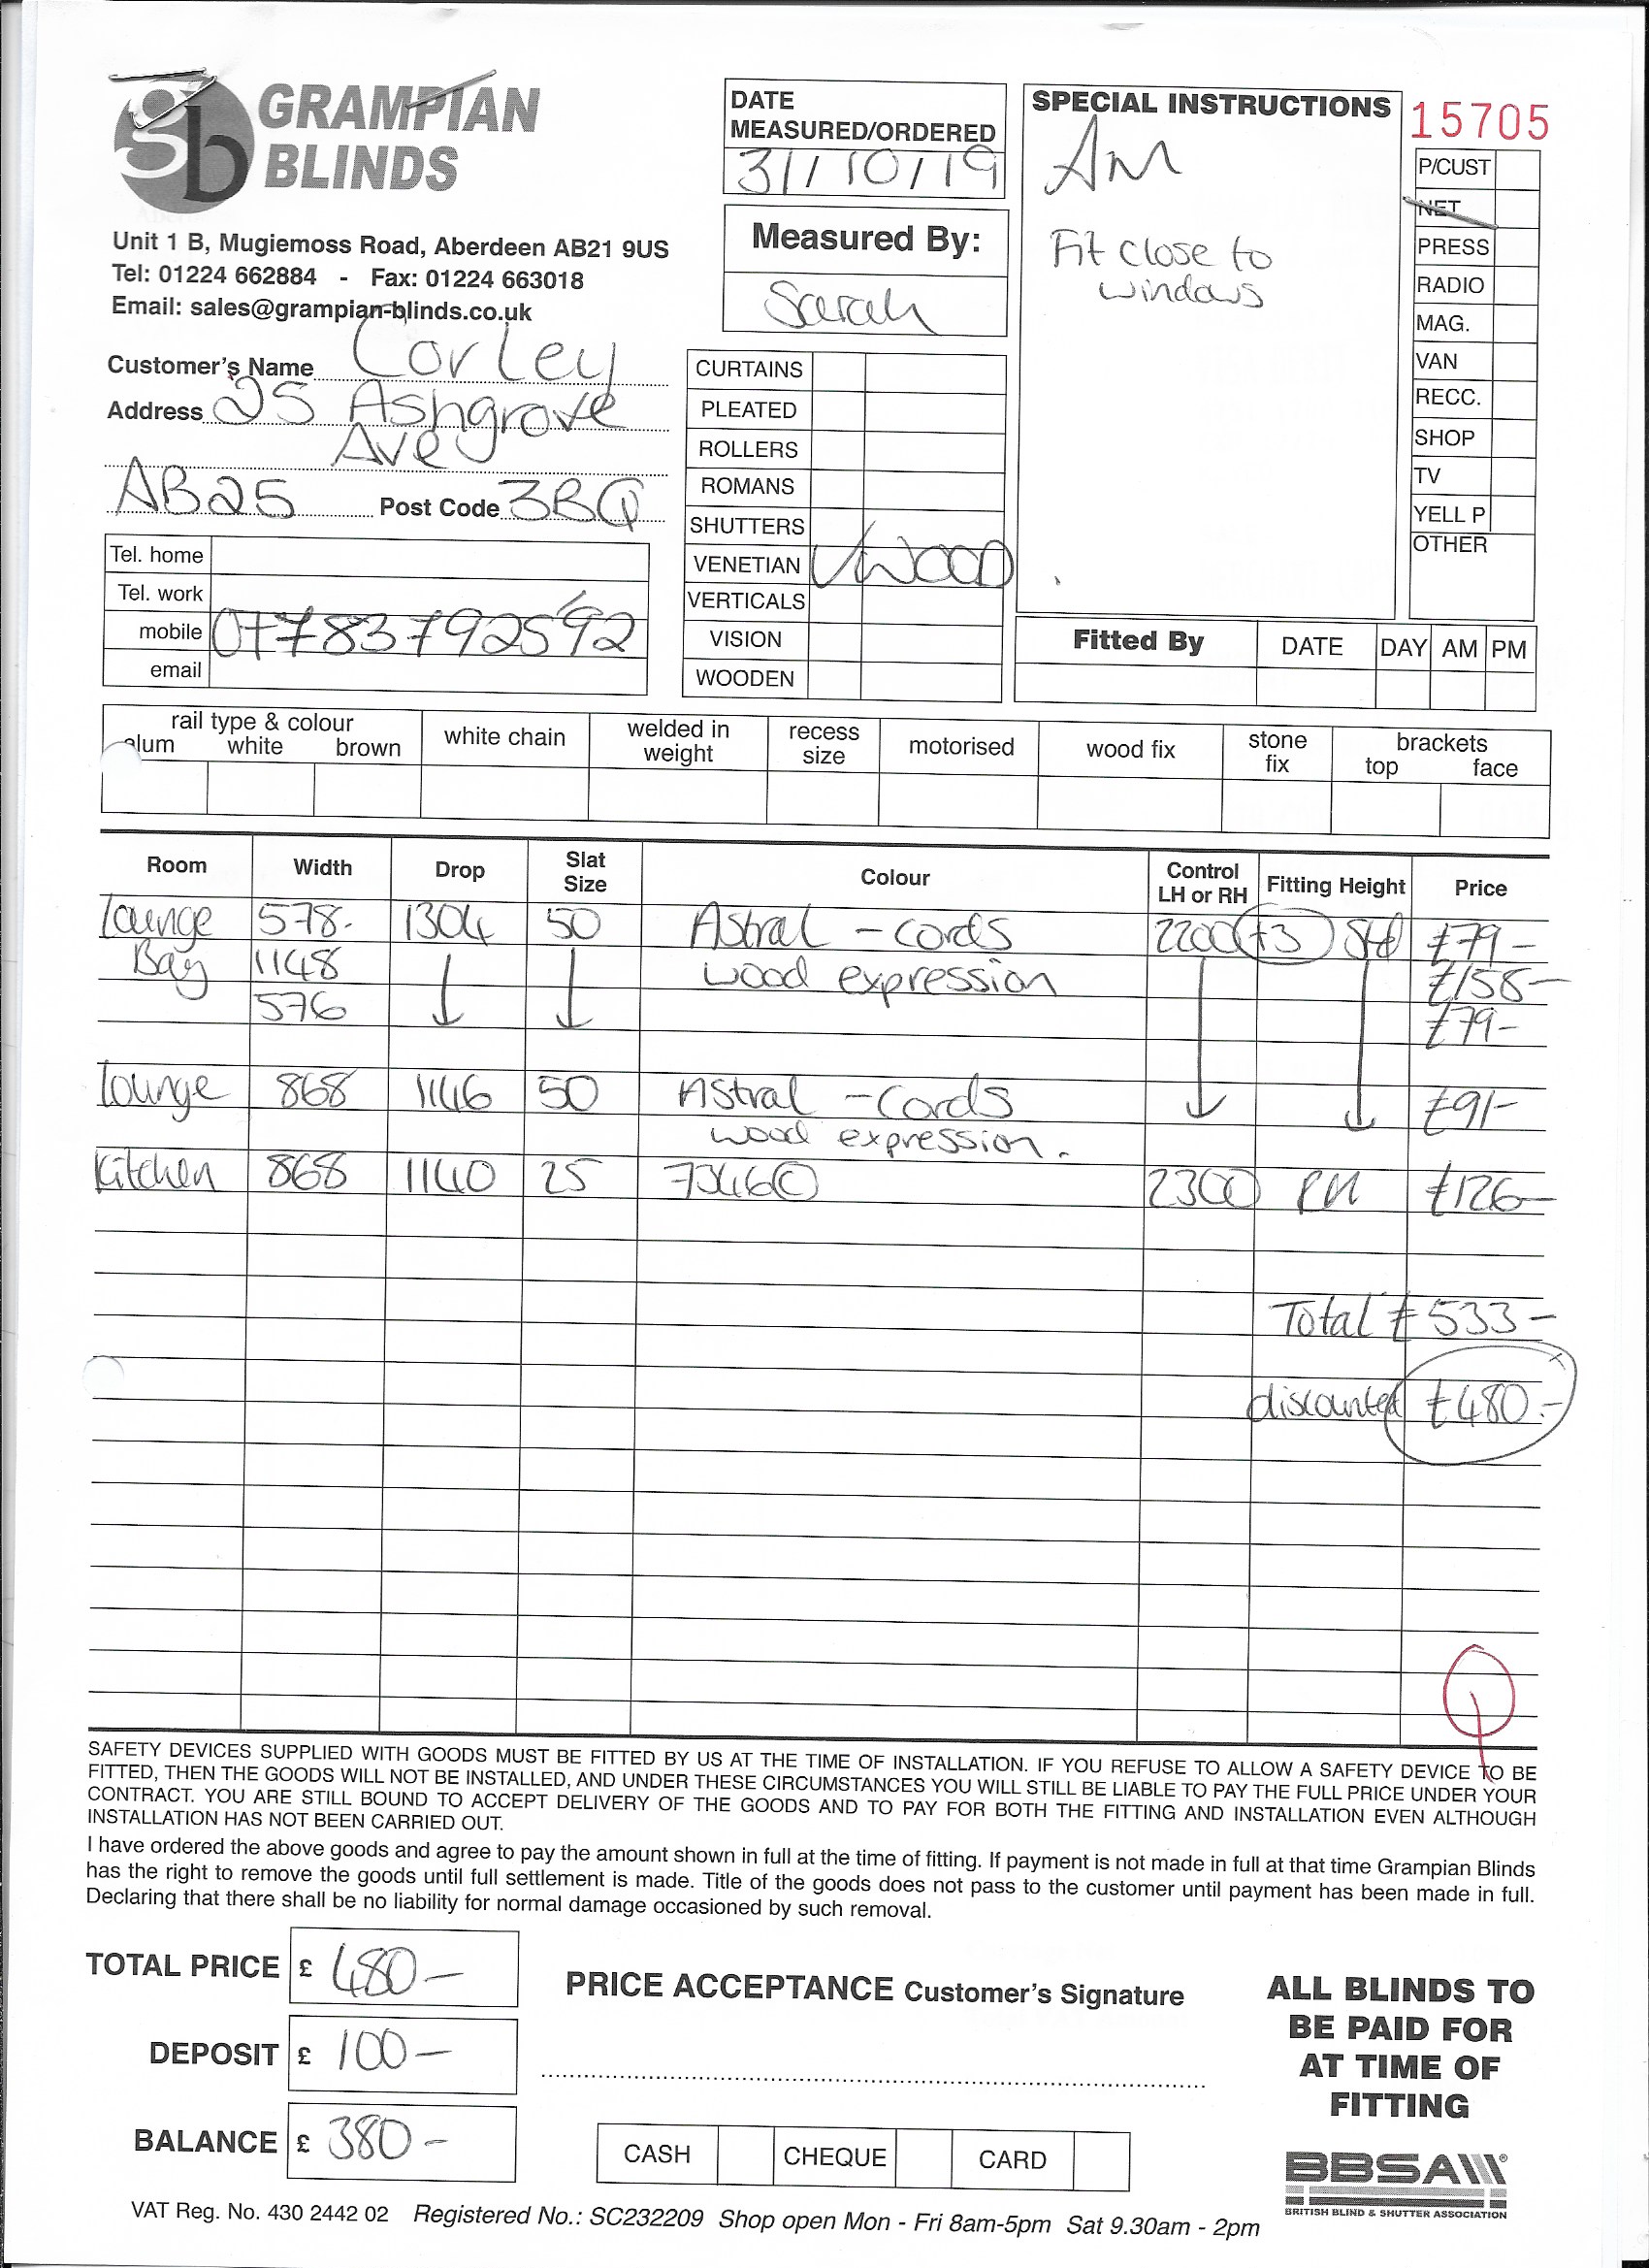 gb GRAMPIAN
BLINDS
Unit 1 B, Mugiemoss Road, Aberdeen AB21 9US
Tel: 01224 662884 - Fax: 01224 663018
Email: sales@grampian-blinds.co.uk
Customer's Name Corley
Address 25 Ashgrove
Ave
AB25 Post Code 3BQ
Tel. home
Tel. work
mobile 07783792592
email
DATE
MEASURED/ORDERED
31/10/19
Measured By:
Sarah
CURTAINS
PLEATED
ROLLERS
ROMANS
SHUTTERS
VENETIAN ✓ WOOD
VERTICALS
VISION
WOODEN
SPECIAL INSTRUCTIONS
AM
Fit close to
windows
15705
P/CUST
NET
PRESS
RADIO
MAG.
VAN
RECC.
SHOP
TV
YELL P
OTHER
Fitted By DATE DAY AM PM
rail type & colour
alum white brown
white chain
welded in
weight
recess
size
motorised
wood fix
stone
fix
brackets
top face
Room Width Drop Slat Size Colour Control LH or RH Fitting Height Price
Lounge 578. 1304 50 Astral - cords 2200 +3 Std £79-
Bay 1148 wood expression £158-
576 £79-
Lounge 868 1146 50 Astral - Cords £91-
wood expression.
Kitchen 868 1140 25 7346© 2300 RH £126-
Total £533-
discounted £480.-
SAFETY DEVICES SUPPLIED WITH GOODS MUST BE FITTED BY US AT THE TIME OF INSTALLATION. IF YOU REFUSE TO ALLOW A SAFETY DEVICE TO BE
FITTED, THEN THE GOODS WILL NOT BE INSTALLED, AND UNDER THESE CIRCUMSTANCES YOU WILL STILL BE LIABLE TO PAY THE FULL PRICE UNDER YOUR
CONTRACT. YOU ARE STILL BOUND TO ACCEPT DELIVERY OF THE GOODS AND TO PAY FOR BOTH THE FITTING AND INSTALLATION EVEN ALTHOUGH
INSTALLATION HAS NOT BEEN CARRIED OUT.
I have ordered the above goods and agree to pay the amount shown in full at the time of fitting. If payment is not made in full at that time Grampian Blinds
has the right to remove the goods until full settlement is made. Title of the goods does not pass to the customer until payment has been made in full.
Declaring that there shall be no liability for normal damage occasioned by such removal.
TOTAL PRICE £ 480-
DEPOSIT £ 100-
BALANCE £ 380-
PRICE ACCEPTANCE Customer's Signature
CASH CHEQUE CARD
ALL BLINDS TO
BE PAID FOR
AT TIME OF
FITTING
BBSA
BRITISH BLIND & SHUTTER ASSOCIATION
VAT Reg. No. 430 2442 02 Registered No.: SC232209 Shop open Mon - Fri 8am-5pm Sat 9.30am - 2pm